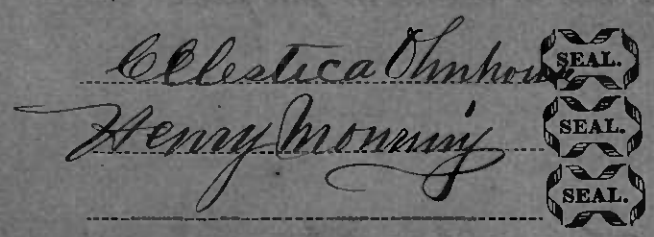 CElestica Ohnhouse SEAL.
Henry Monning SEAL.
SEAL.